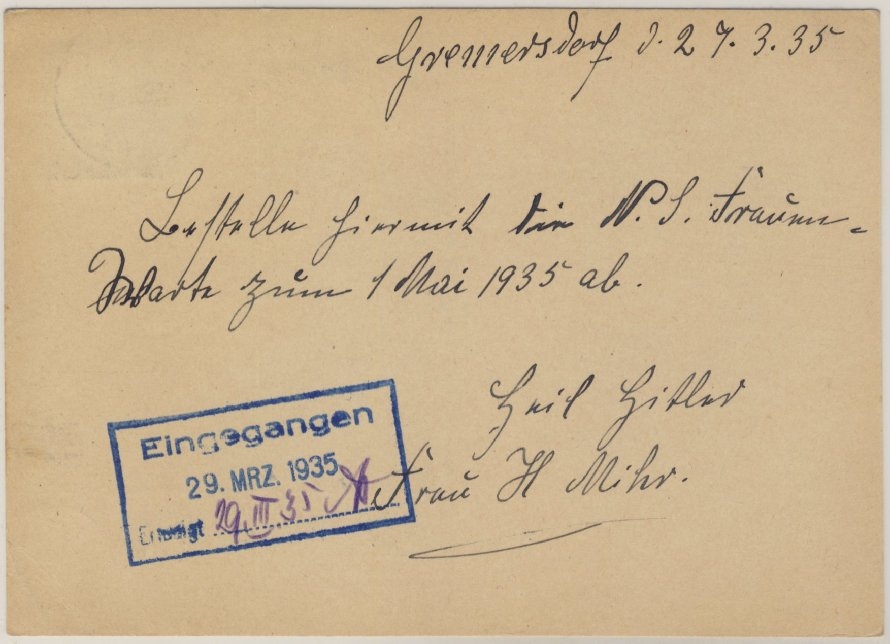 Gremersdorf d. 27.3.35
Bestelle hiermit die N.S. Frauen-
Warte zum 1 Mai 1935 ab.
Heil Hitler
Frau H Mihr.
Eingegangen
29. MRZ. 1935
Erledigt 29. III 35